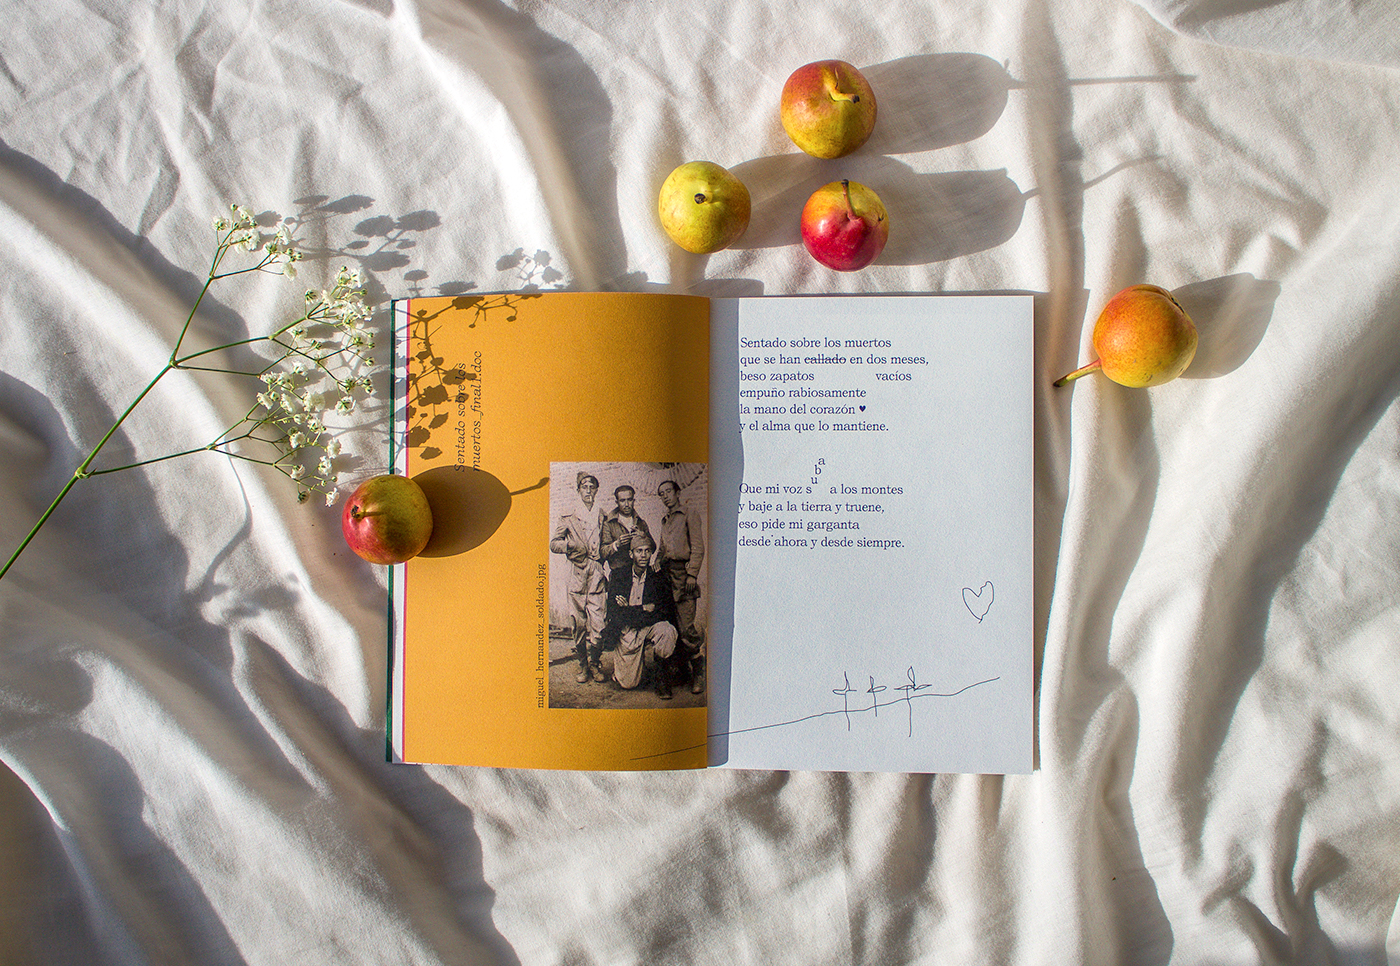 Sentado sobre los
muertos_final1.doc
miguel_hernandez_soldado.jpg
Sentado sobre los muertos
que se han callado en dos meses,
beso zapatos vacíos
empuño rabiosamente
la mano del corazón ♥
y el alma que lo mantiene.
Que mi voz suba a los montes
y baje a la tierra y truene,
eso pide mi garganta
desde ahora y desde siempre.